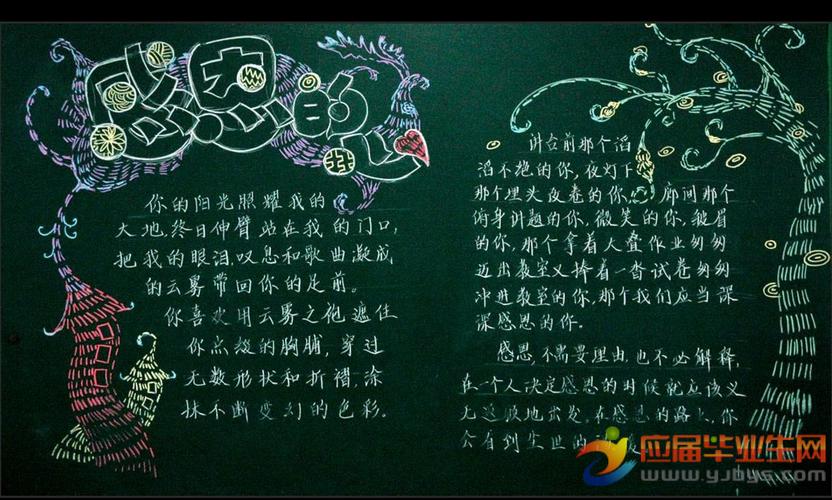 你的阳光照耀我的
大地,终日伸臂站在我的门口,
把我的眼泪,叹息和歌曲凝成
的云雾带回你的足前。
你喜爱用云雾之袍遮住
你点缀的胸脯,穿过
无数形状和折褶,涂
抹不断变幻的色彩。
讲台前那个滔
滔不绝的你,夜灯下
那个埋头改卷的你,廊间那个
俯身讲题的你,微笑的你,皱眉
的你,那个拿着大叠作业匆匆
迈出教室又捧着一沓试卷匆匆
冲进教室的你,那个我们应当深
深感恩的你。
感恩,不需要理由,也不必解释,
在一个人决定感恩的时候就应该义
无返顾地出发。在感恩的路上,你
会看到尘世的
应届毕业生网
www.yjbys.com